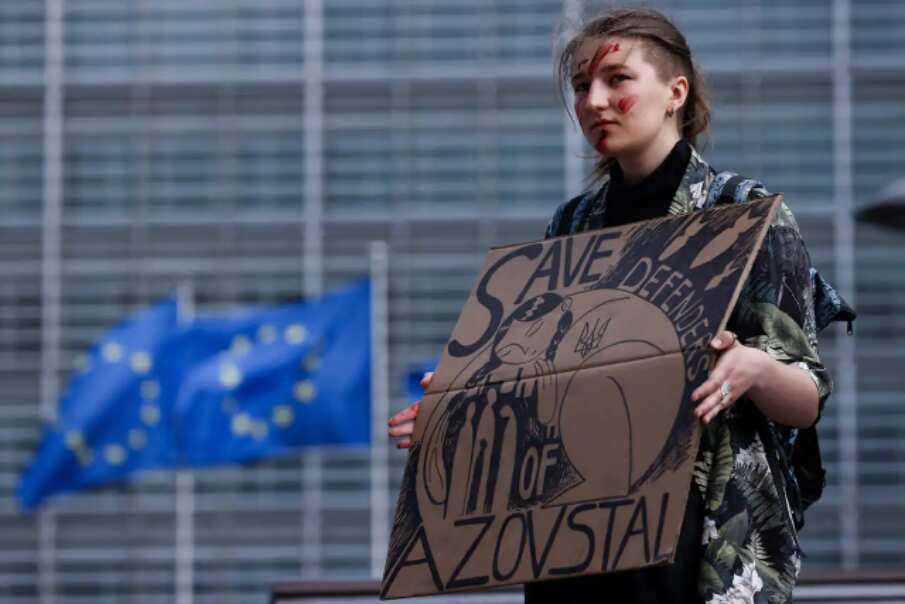 SAVE
DEFENDERS
OF
AZOVSTAL